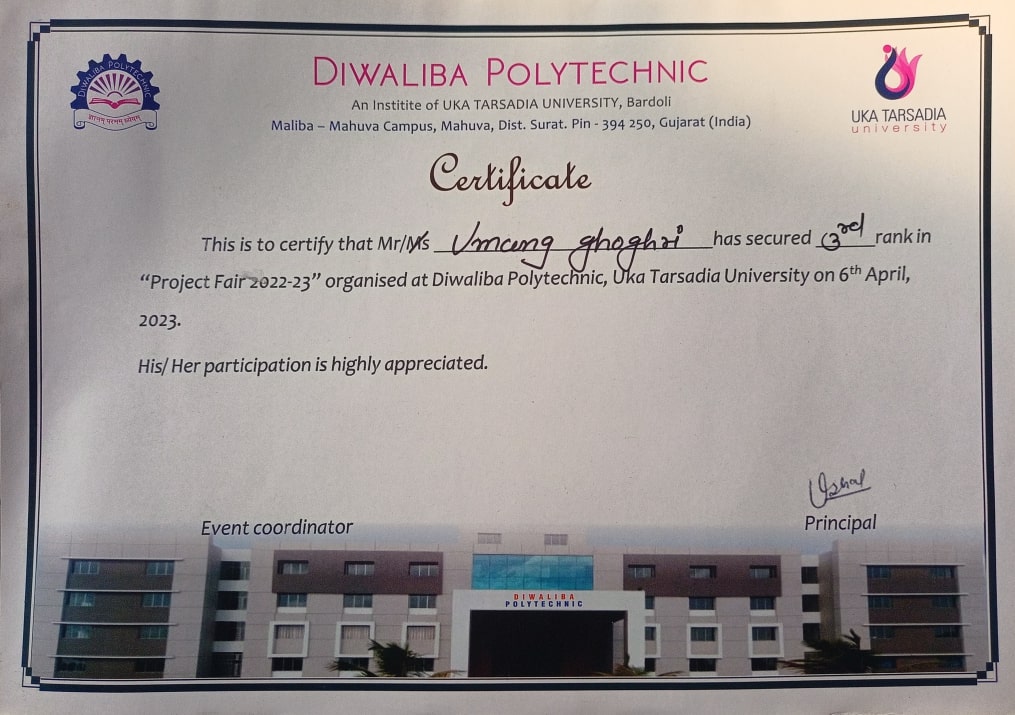 DIWALIBA POLYTECHNIC
ज्ञानम् परमम् ध्येयम्
DIWALIBA POLYTECHNIC
An Institite of UKA TARSADIA UNIVERSITY, Bardoli
Maliba – Mahuva Campus, Mahuva, Dist. Surat. Pin - 394 250, Gujarat (India)
UKA TARSADIA
university
Certificate
This is to certify that Mr/Ms Umang ghoghri has secured 3rd rank in
“Project Fair 2022-23” organised at Diwaliba Polytechnic, Uka Tarsadia University on 6th April,
2023.
His/ Her participation is highly appreciated.
Event coordinator
Principal
DIWALIBA
POLYTECHNIC